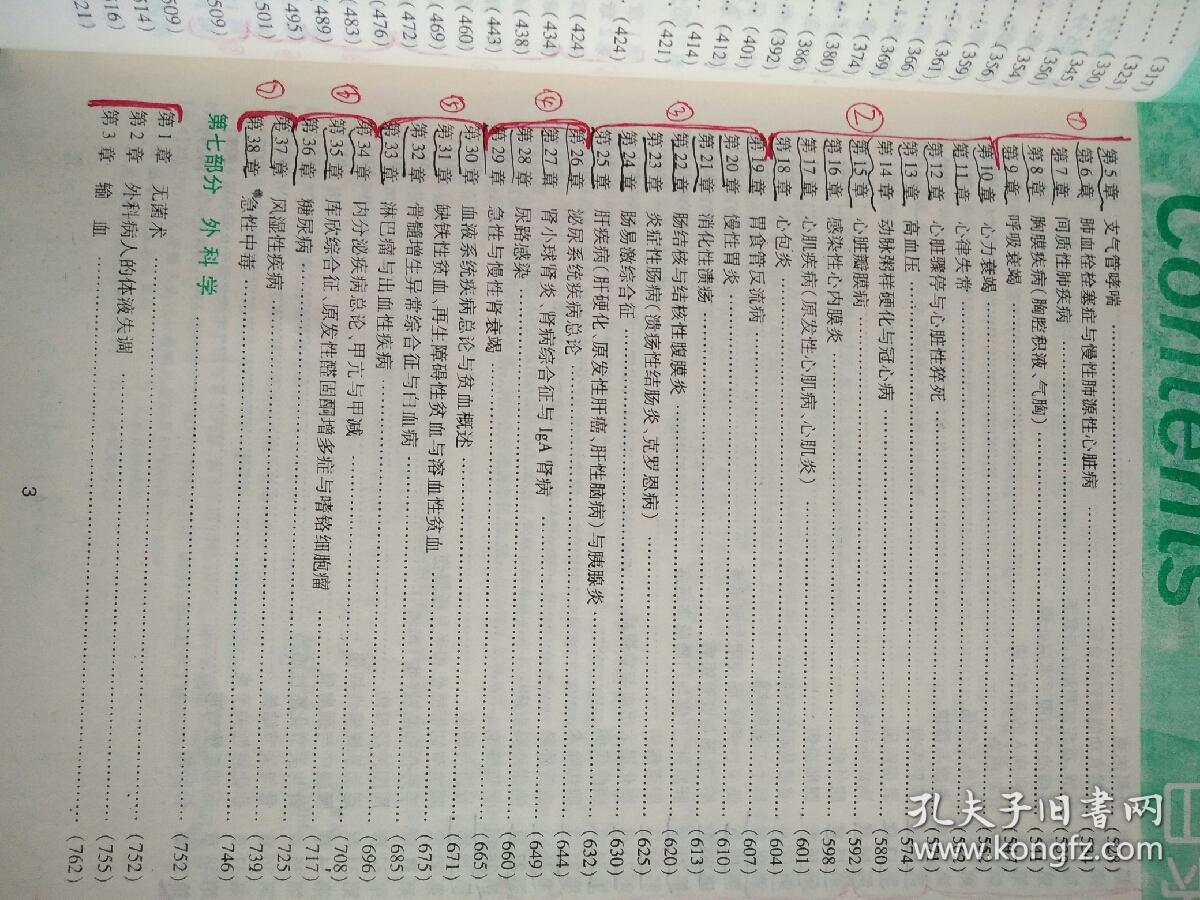 (317)
(323)
(330)
(345)
(350)
(354)
(356)
(359)
(361)
(366)
(369)
(374)
(380)
(386)
(392)
(401)
(412)
(414)
(421)
(424)
(424)
(434)
(438)
(443)
(460)
(469)
(472)
(476)
(483)
(489)
(495)
(501)
509)
509)
514)
516)
21)
Contents
目录
①
第5章 支气管哮喘
第6章 肺血栓栓塞症与慢性肺源性心脏病
第7章 间质性肺疾病
第8章 胸膜疾病(胸腔积液、气胸)
第9章 呼吸衰竭
②
第10章 心力衰竭
第11章 心律失常
第12章 心脏骤停与心脏性猝死
第13章 高血压 (574)
第14章 动脉粥样硬化与冠心病 (580)
第15章 心脏瓣膜病 (592)
第16章 感染性心内膜炎 (598)
第17章 心肌疾病(原发性心肌病、心肌炎) (601)
第18章 心包炎 (604)
③
第19章 胃食管反流病 (607)
第20章 慢性胃炎 (610)
第21章 消化性溃疡 (613)
第22章 肠结核与结核性腹膜炎 (620)
第23章 炎症性肠病(溃疡性结肠炎、克罗恩病) (625)
第24章 肠易激综合征 (630)
第25章 肝疾病(肝硬化、原发性肝癌、肝性脑病)与胰腺炎 (632)
④
第26章 泌尿系统疾病总论 (644)
第27章 肾小球肾炎、肾病综合征与IgA肾病 (649)
第28章 尿路感染 (660)
第29章 急性与慢性肾衰竭 (665)
⑤
第30章 血液系统疾病总论与贫血概述 (671)
第31章 缺铁性贫血、再生障碍性贫血与溶血性贫血 (675)
第32章 骨髓增生异常综合征与白血病 (685)
第33章 淋巴瘤与出血性疾病 (696)
⑥
第34章 内分泌疾病总论、甲亢与甲减 (708)
第35章 库欣综合征、原发性醛固酮增多症与嗜铬细胞瘤 (717)
第36章 糖尿病 (725)
⑦
第37章 风湿性疾病 (739)
第38章 急性中毒 (746)
第七部分 外科学 (752)
第1章 无菌术 (752)
第2章 外科病人的体液失调 (755)
第3章 输血 (762)
3
孔夫子旧书网
www.kongfz.com